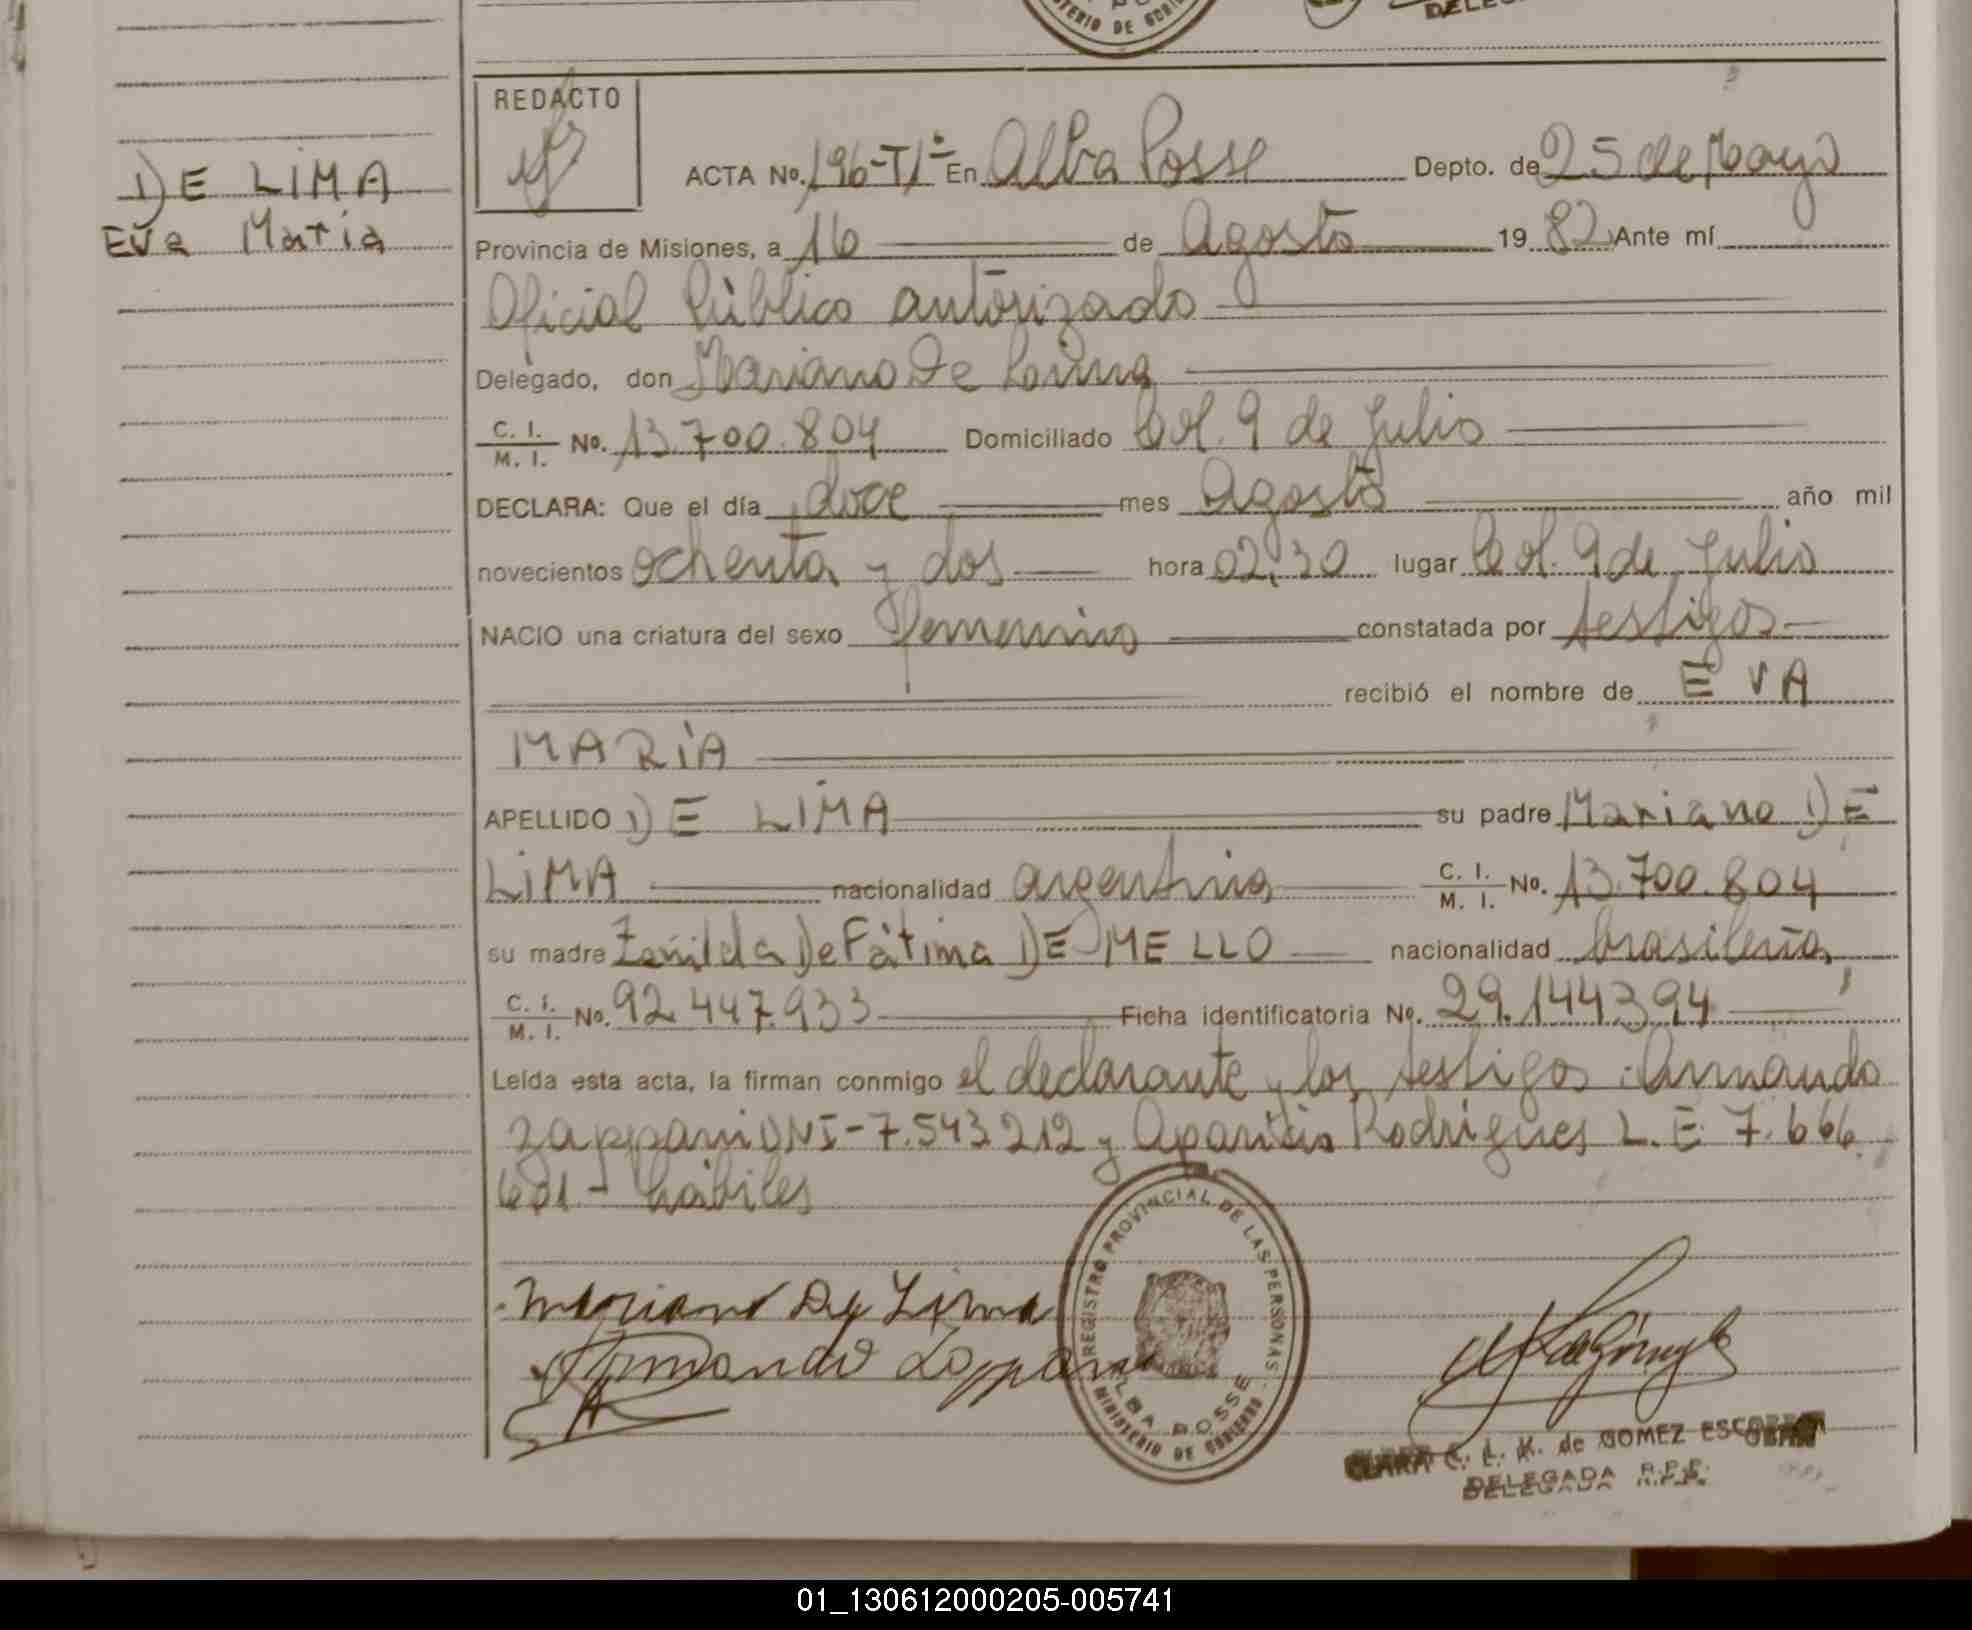 MINISTERIO DE GOBIERNO
REDACTO
D E LIMA
Eva Maria
ACTA No. 196-T1º En Alba Posse Depto. de 25 de Mayo
Provincia de Misiones, a 16 de Agosto 19 82 Ante mí
Oficial Público autorizado
Delegado, don Mariano De Lima
C. I. / M. I. No. 13.700.804 Domiciliado Col. 9 de Julio
DECLARA: Que el día doce mes Agosto año mil
novecientos ochenta y dos hora 02,30 lugar Col. 9 de Julio
NACIO una criatura del sexo femenino constatada por testigos
recibió el nombre de EVA
MARIA
APELLIDO DE LIMA su padre Mariano DE
LIMA nacionalidad argentina C. I. / M. I. No. 13.700.804
su madre Zenilda De Fátima DE MELLO nacionalidad brasileña,
C. I. / M. I. No. 92.447.933 Ficha identificatoria No. 29.144394
Leída esta acta, la firman conmigo el declarante y los testigos: Armando
Zappani DNI-7.543.212 y Aparicio Rodrigues L.E. 7.666.
601- hábiles
Mariano De Lima
Armando Zappani
REGISTRO PROVINCIAL DE LAS PERSONAS
ALBA POSSE
MINISTERIO DE GOBIERNO
CLARA C. L. K. de GOMEZ ESCOBAR
DELEGADA R.P.P.
01_130612000205-005741